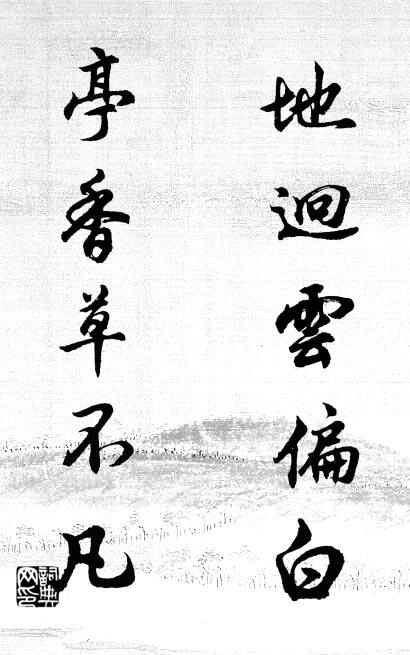 地迥雲偏白
亭香草不凡
詞典網印